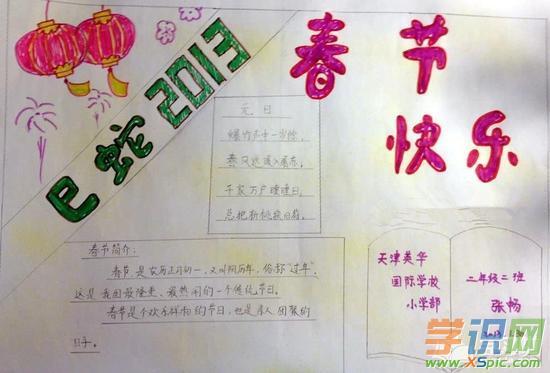 春节
快乐
巳蛇2013
元日
爆竹声中一岁除,
春风送暖入屠苏。
千家万户曈曈日,
总把新桃换旧符。
春节简介:
春节是农历正月初一,又叫阴历年,俗称"过年",
这是我国最隆重、最热闹的一个传统节日。
春节是个欢乐祥和的节日,也是亲人团聚的
日子。
天津英华
国际学校
小学部
二年级二班
张畅
学识网
www.xspic.com